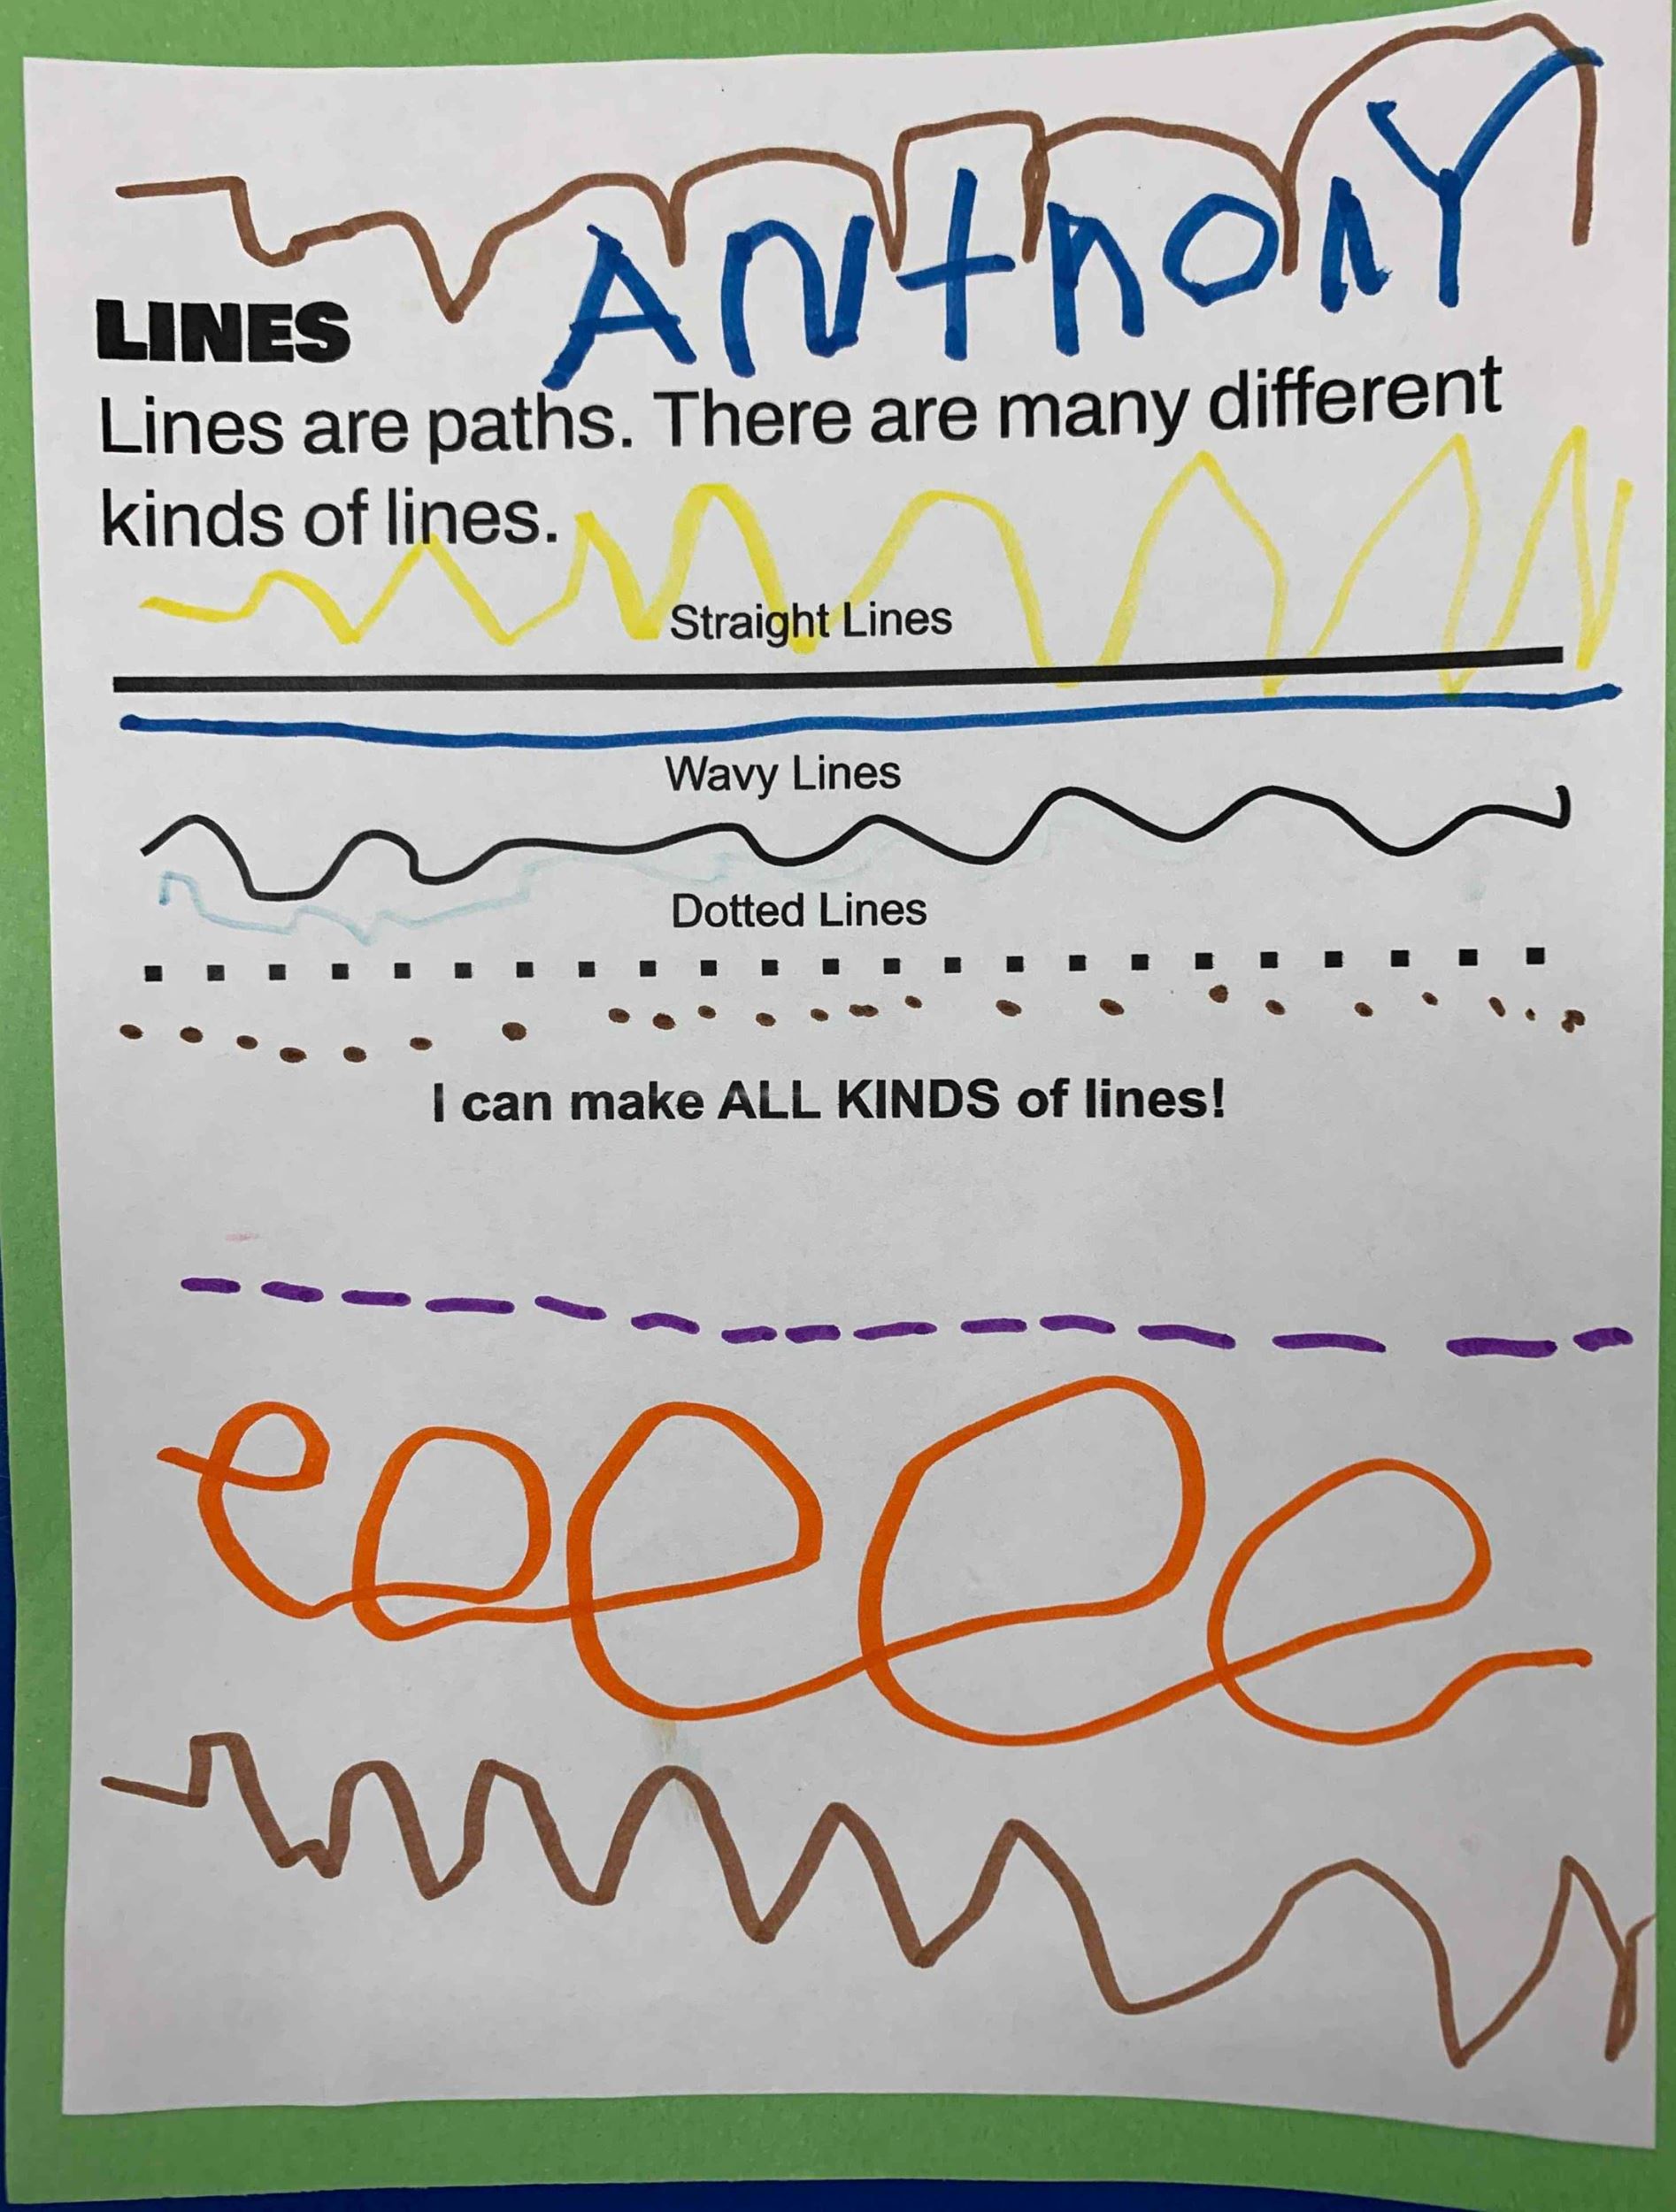 ANthoNY
LINES
Lines are paths. There are many different
kinds of lines.
Straight Lines
Wavy Lines
Dotted Lines
I can make ALL KINDS of lines!